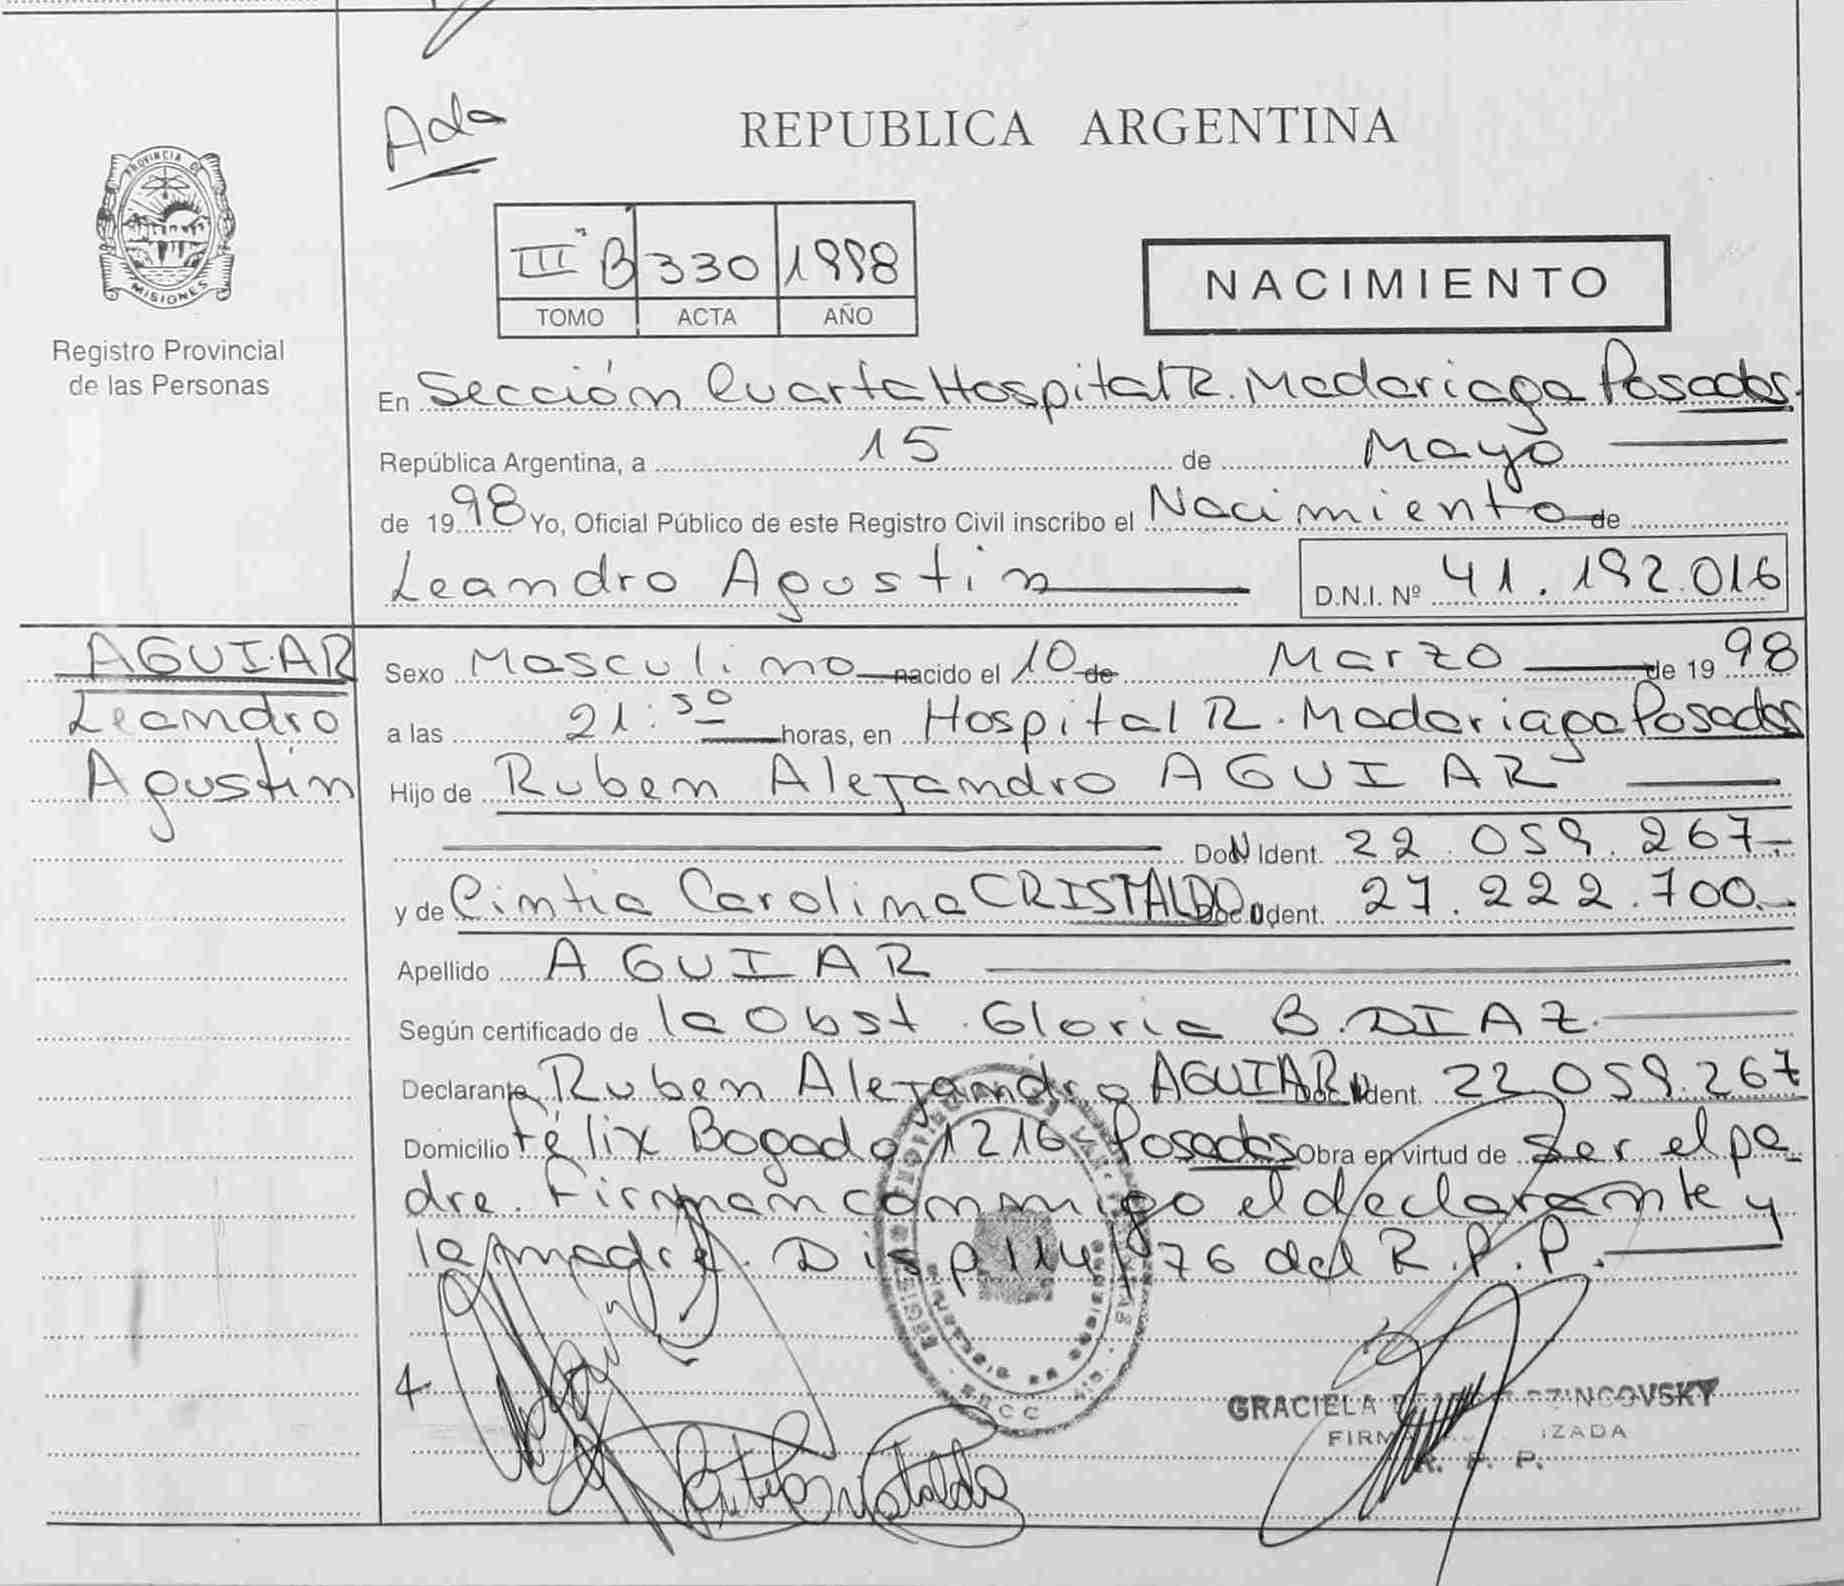 Ada
REPUBLICA ARGENTINA
PROVINCIA DE
MISIONES
Registro Provincial
de las Personas
III B 330 1998
TOMO ACTA AÑO
NACIMIENTO
En Sección Cuarta Hospital R. Madariaga Posadas.
República Argentina, a 15 de Mayo
de 1998 Yo, Oficial Público de este Registro Civil inscribo el Nacimiento de
Leandro Agustin D.N.I. Nº 41.192.016
AGUIAR
Leandro
Agustín
Sexo Masculino nacido el 10 de Marzo de 1998
a las 21:50 horas, en Hospital R. Madariaga Posadas
Hijo de Ruben Alejandro AGUIAR
Doc. Ident. 22.059.267
y de Cintia Carolina CRISTALDO Doc. Ident. 27.222.700
Apellido AGUIAR
Según certificado de la Obst. Gloria B. DIAZ.
Declarante Ruben Alejandro AGUIAR Doc. Ident. 22.059.267
Domicilio Félix Bogado 1216 Posadas Obra en virtud de ser el pa
dre. Firman conmigo el declarante y
la madre. Disp 114/76 del R.P.P.
GRACIELA
FIRMA
R. P. P.